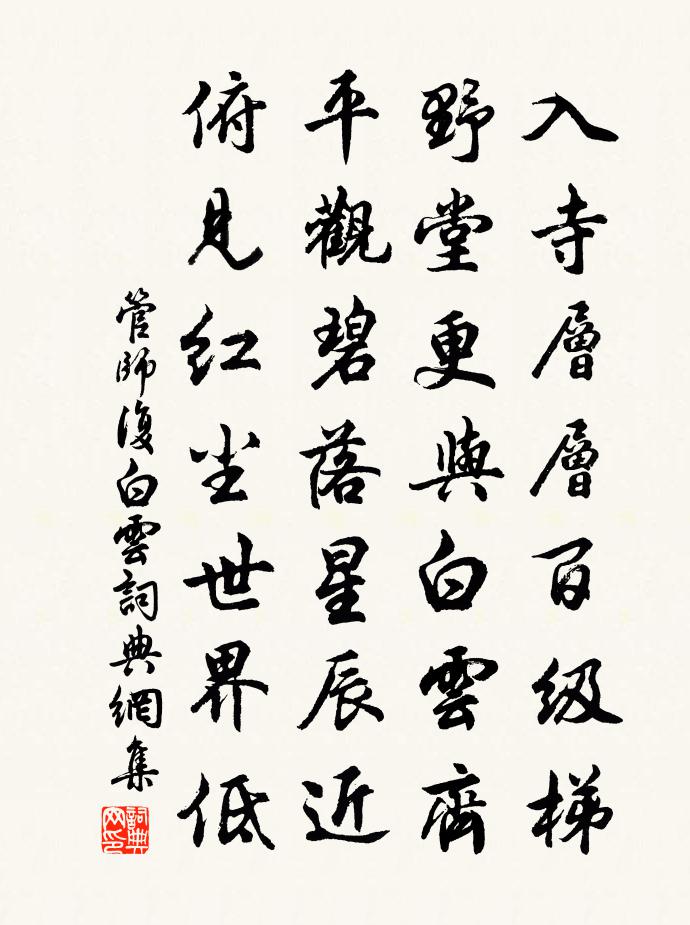 入寺層層百级梯
野堂更與白雲齊
平觀碧落星辰近
俯見红尘世界低
管師復白雲詞典網集
詞典
网印